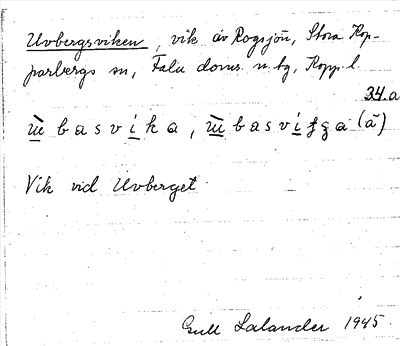 Uvbergsviken, vik av Rogsjön, Stora Kop-
parbergs sn, Falu doms. n. tg, Kopp. l.
34.a
b a s v i k a , b a s v i
Vik vid Uvberget
Gull Lalander 1945